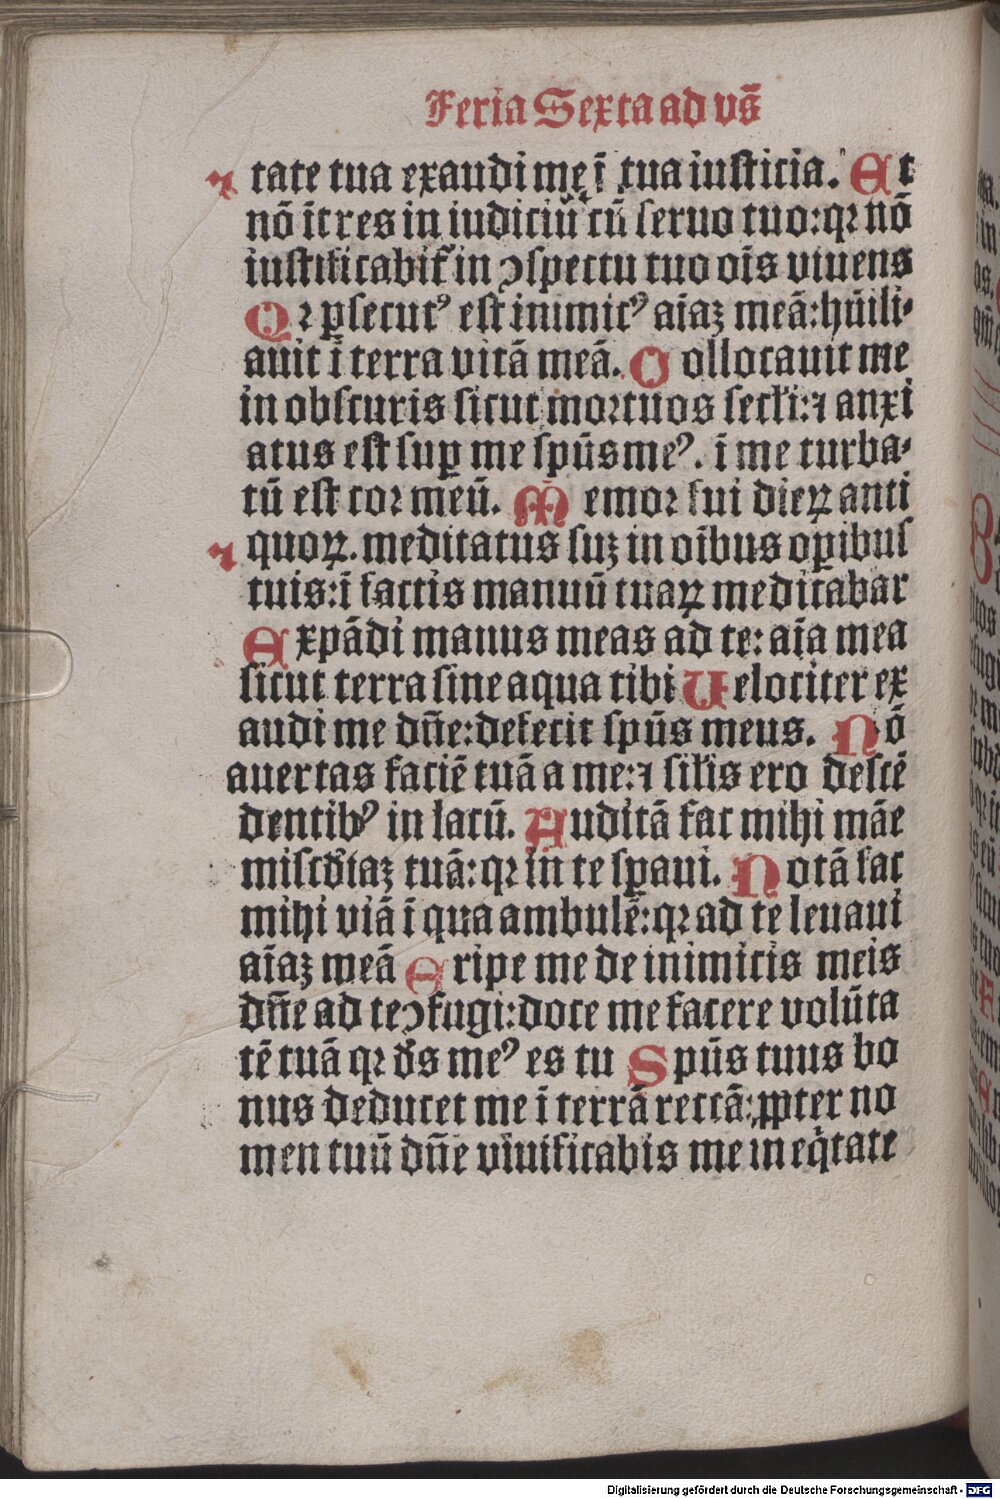 Feria Sexta ad vs̄
tate tua exaudi me ī tua iusticia. Et
nō ītres in iudiciū cū seruo tuo: qꝛ nō
iustificabit᷑ in ↄspectu tuo oīs viuens
Qꝛ ꝑsecutꝰ est inimicꝰ aīaꝫ meā: hūili⸗
auit ī terra vitā meā. Collocauit me
in obscuris sicut moꝛtuos secĺi: ⁊ anxi
atus est suꝑ me spūs meꝰ. ī me turba⸗
tū est coꝛ meū. Memoꝛ fui dieꝝ anti
quoꝝ. meditatus suꝫ in oībus oꝑibus
tuis: ī factis manuū tuaꝝ meditabar
Expādi manus meas ad te: aīa mea
sicut terra sine aqua tibi Uelociter ex
audi me dn̄e: defecit spūs meus. Nō
auertas faciē tuā a me: ⁊ siĺis ero descē
dentibꝰ in lacū. Auditā fac mihi māe
miscďiaꝫ tuā: qꝛ in te sꝑaui. Notā fac
mihi viā ī qua ambulē: qꝛ ad te leuaui
aīaꝫ meā Eripe me de inimicis meis
dn̄e ad te ↄfugi: doce me facere volūta
tē tuā qꝛ ďs meꝰ es tu Spūs tuus bo
nus deducet me ī terrā rectā: ꝓpter no
men tuū dn̄e viuificabis me in eq̇tate
Digitalisierung gefördert durch die Deutsche Forschungsgemeinschaft - DFG